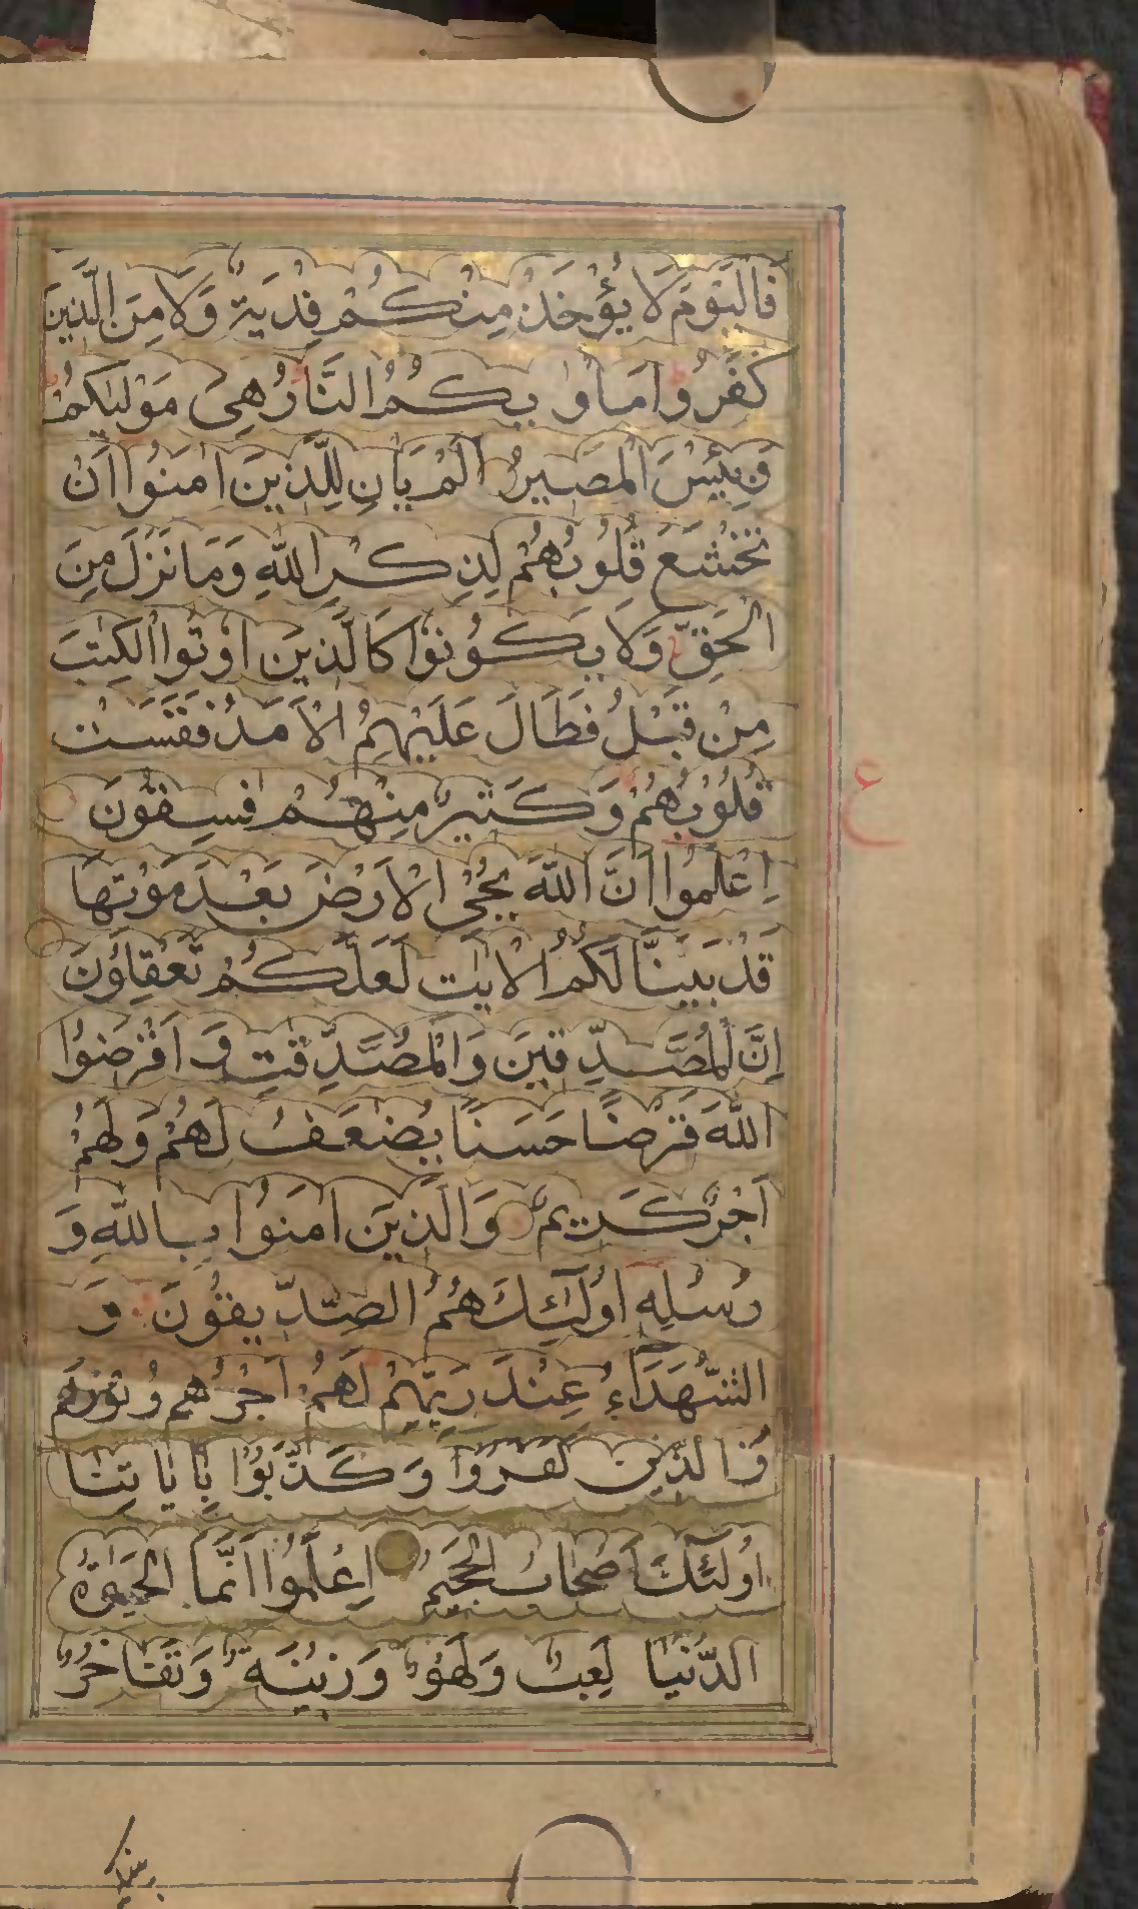 فَالْيَوْمَ لَا يُؤْخَذُ مِنْكُمْ فِدْيَةٌ وَلَا مِنَ الَّذِينَ
كَفَرُوا مَاْوٰىكُمُ النَّارُ هِىَ مَوْلٰيكُمْ
وَبِئْسَ الْمَصِيرُ اَلَمْ يَاْنِ لِلَّذِينَ اٰمَنُوا اَنْ
تَخْشَعَ قُلُوبُهُمْ لِذِكْرِ اللّٰهِ وَمَا نَزَلَ مِنَ
الْحَقِّ وَلَا يَكُونُوا كَالَّذِينَ اُوتُوا الْكِتٰبَ
مِنْ قَبْلُ فَطَالَ عَلَيْهِمُ الْاَمَدُ فَقَسَتْ
قُلُوبُهُمْ وَكَثِيرٌ مِنْهُمْ فٰسِقُونَ
اِعْلَمُوا اَنَّ اللّٰهَ يُحْىِ الْاَرْضَ بَعْدَ مَوْتِهَا
قَدْ بَيَّنَّا لَكُمُ الْاٰيٰتِ لَعَلَّكُمْ تَعْقِلُونَ
اِنَّ الْمُصَّدِّقِينَ وَالْمُصَّدِّقٰتِ وَاَقْرَضُوا
اللّٰهَ قَرْضًا حَسَنًا يُضٰعَفُ لَهُمْ وَلَهُمْ
اَجْرٌ كَرِيمٌ وَالَّذِينَ اٰمَنُوا بِاللّٰهِ وَ
رُسُلِهِ اُولٰٓئِكَ هُمُ الصِّدِّيقُونَ وَ
الشُّهَدَٓاءُ عِنْدَ رَبِّهِمْ لَهُمْ اَجْرُهُمْ وَنُورُهُمْ
وَالَّذِينَ كَفَرُوا وَكَذَّبُوا بِاٰيَاتِنَا
اُولٰٓئِكَ اَصْحَابُ الْجَحِيمِ اِعْلَمُوا اَنَّمَا الْحَيٰوةُ
الدُّنْيَا لَعِبٌ وَلَهْوٌ وَزِينَةٌ وَتَفَاخُرٌ
ع